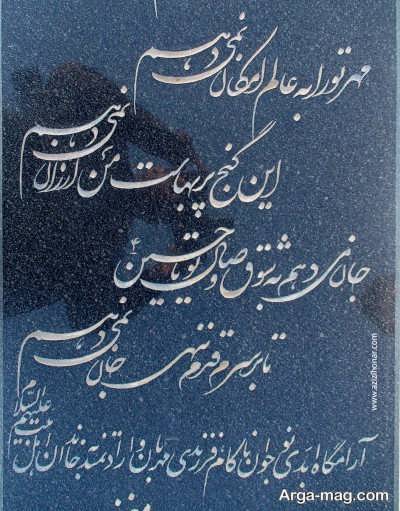 مهر تو را به عالم امکان نمی دهم
این گنج پر بهاست من ارزان نمی دهم
جان می دهم به شوق وصال تو یا حسین ع
تا بر سرم قدم ننهی جان نمی دهم
آرامگاه ابدی نوجوان ناکام فرزندی مهربان و ارادتمند به خاندان اهل بیت علیهم السلام
www.azizhonar.com
Arga-mag.com